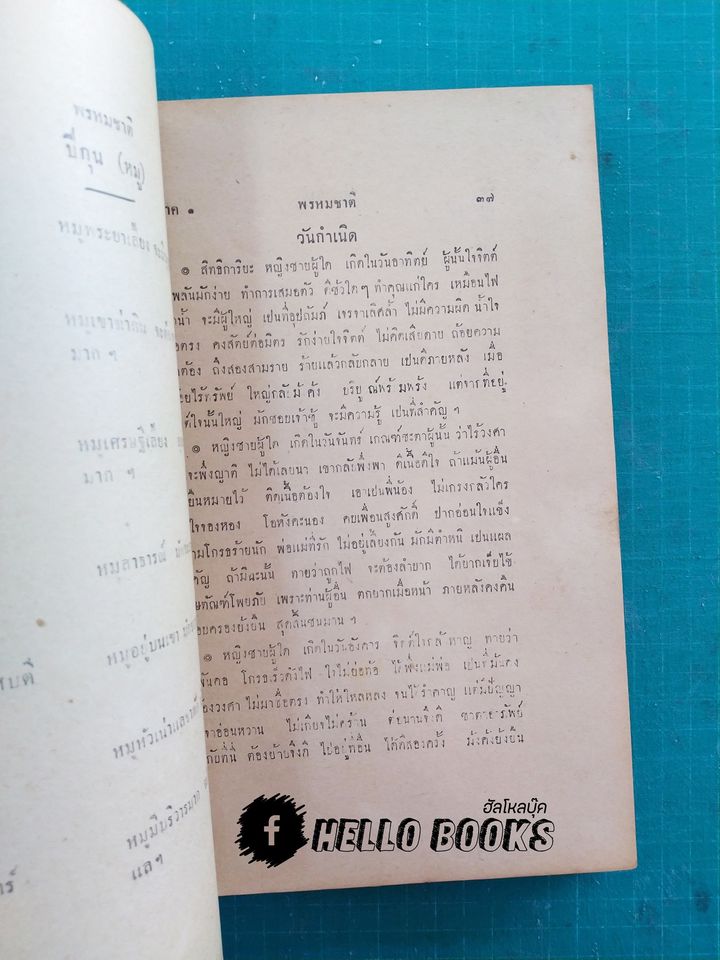 พรหมชาติ
ปีกุน (หมู)
หมูพระยาเลี้ยง
หมูเขาทำกิน
มาก ๆ
หมูเศรษฐีเลี้ยง
มาก ๆ
หมูสาธารณ์
หมูอยู่บนเขา
หมูหัวเน่า
หมูมีบริวารมาก
แล ๆ
าค ๑ พรหมชาติ ๓๗
วันกำเนิด
๏ สิทธิการิยะ หญิงชายผู้ใด เกิดในวันอาทิตย์ ผู้นั้นใจจิตต์
พลันมักง่าย ทำการเสมอตัว ดีชั่วใดๆ ทำคุณแก่ใคร เหมือนไฟ
น้ำ จะมีผู้ใหญ่ เป็นที่อุปถัมภ์ เจรจาเลิศล้ำ ไม่มีความผิด น้ำใจ
ตรง คงสัตย์ต่อมิตร รักง่ายใจจิตต์ ไม่คิดเสียดาย ถ้อยความ
ต้อง ถึงสองสามราย ร้ายแล้วกลับกลาย เป็นดีภายหลัง เมื่อ
ยไร้ทรัพย์ ใหญ่กลับมั่งคั่ง บริบูรณ์พร้อมพรั่ง แต่จากที่อยู่
ใจนั้นใหญ่ มักชอบเจ้าชู้ จะมีความรู้ เป็นที่สำคัญ ๆ
๏ หญิงชายผู้ใด เกิดในวันจันทร์ เกณฑ์ชะตาผู้นั้น ว่าไร้วงศา
จะพึ่งญาติ ไม่ได้เลยนา เขากลับพึ่งพา ดีเนื้อดีใจ ถ้าแม้นผู้อื่น
ยืนหมายไว้ ติดเนื้อต้องใจ เอาเป็นพี่น้อง ไม่เกรงกลัวใคร
ใจจองหอง โอหังคะนอง คบเพื่อนสูงศักดิ์ ปากอ่อนใจแข็ง
ามโกรธร้ายนัก พ่อแม่ที่รัก ไม่อยู่เลี้ยงกัน มักมีตำหนิ เป็นแผล
คัญ ถ้ามิฉะนั้น ทายว่าถูกไฟ จะต้องลำบาก ได้ยากเจ็บไข้
ทัณฑ์โพยภัย เพราะท่านผู้อื่น ตกยากเมื่อหน้า ภายหลังคงคืน
อบครองยั่งยืน สุดสิ้นชนมาน ๆ
๏ หญิงชายผู้ใด เกิดในวันอังคาร จิตต์ใจกล้าหาญ ทายว่า
โกรธเร็วดังไฟ ใจไม่ย่อท้อ ได้พึ่งแม่พ่อ เป็นที่มั่นคง
องวงศา ไม่มาซื่อตรง ทำให้ใหลหลง จนได้รำคาญ แต่มีปัญญา
จาอ่อนหวาน ไม่เกียจไม่คร้าน
กับที่นี่ ต้องย้ายจึงดี ไปอยู่ที่อื่น ได้ดีสองครั้ง มั่งคั่งยั่งยืน
ฮัลโหลบุ๊ค
f HELLO BOOKS